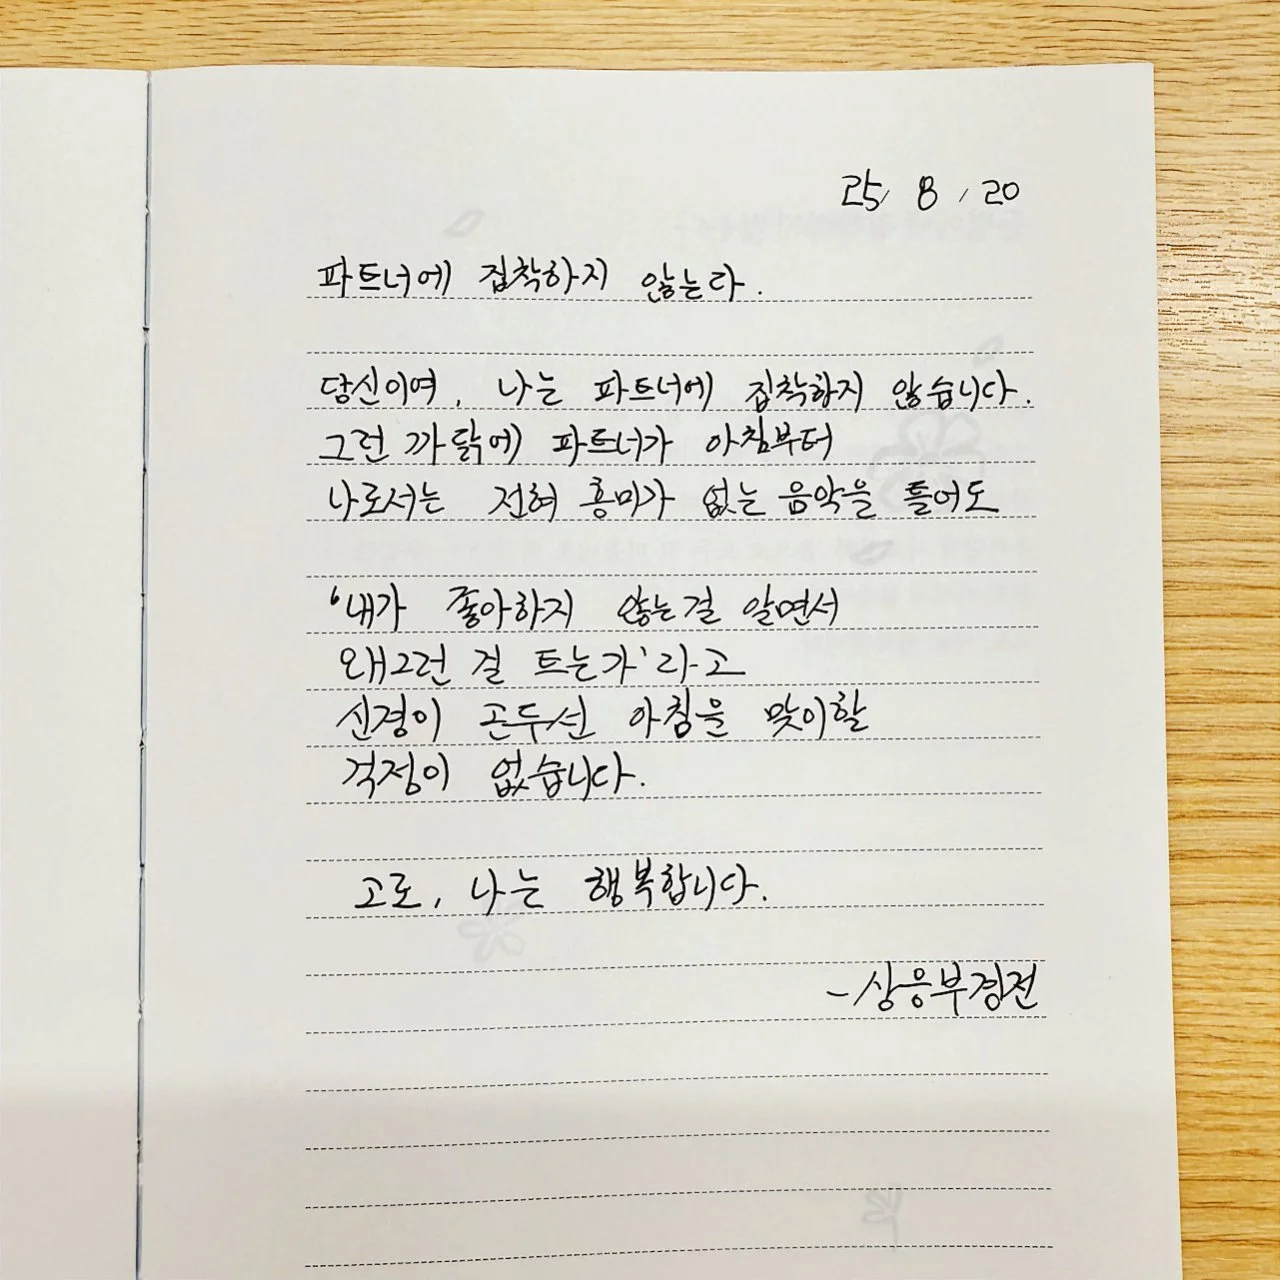 25, 8, 20
파트너에 집착하지 않는다.
당신이여, 나는 파트너에 집착하지 않습니다.
그런 까닭에 파트너가 아침부터
나로서는 전혀 흥미가 없는 음악을 틀어도
'내가 좋아하지 않는걸 알면서
왜그런 걸 트는가'라고
신경이 곤두선 아침을 맞이할
걱정이 없습니다.
고로, 나는 행복합니다.
-상응부경전